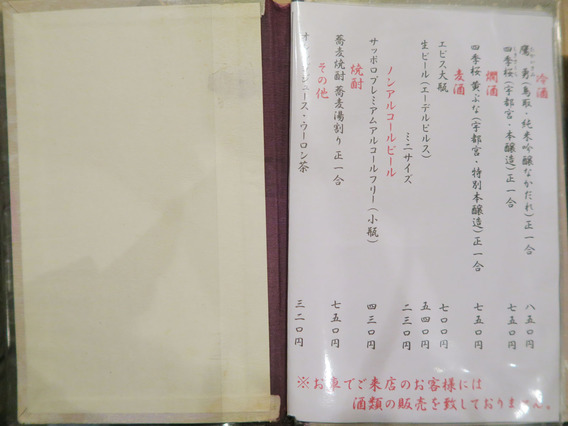 冷酒
鷹勇(鳥取・純米吟醸なかだれ)正一合 八五〇円
四季桜(宇都宮・本醸造)正一合 七五〇円
燗酒
四季桜 黄ぶな(宇都宮・特別本醸造)正一合 七五〇円
麦酒
エビス大瓶 七〇〇円
生ビール(エーデルピルス) 五四〇円
ミニサイズ 二三〇円
ノンアルコールビール
サッポロプレミアムアルコールフリー(小瓶) 四三〇円
焼酎
蕎麦焼酎 蕎麦湯割り 正一合 七五〇円
その他
オレンジジュース・ウーロン茶 三二〇円
※お車でご来店のお客様には
酒類の販売を致しておりません。